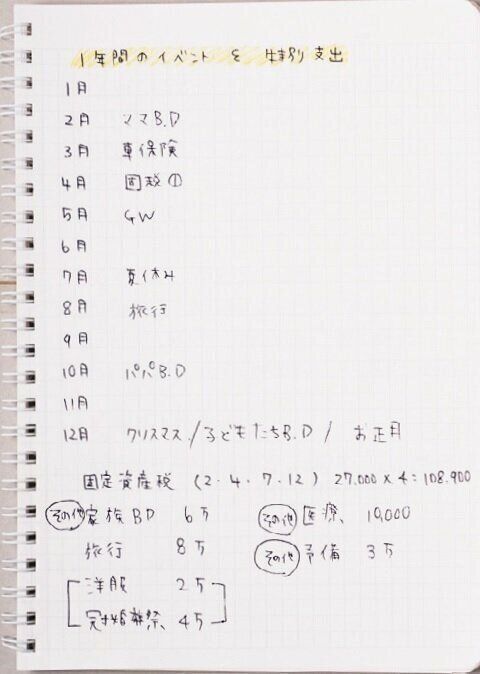 1年間のイベント & 特別支出
1月
2月 ママB.D
3月 車保険
4月 固税①
5月 GW
6月
7月 夏休み
8月 旅行
9月
10月 パパB.D
11月
12月 クリスマス/子どもたちB.D/ お正月
固定資産税 (2・4・7・12) 27.000×4=108.900
その他 家族BD 6万 その他 医療 10,000
旅行 8万 その他 予備 3万
洋服 2万
冠婚葬祭 4万